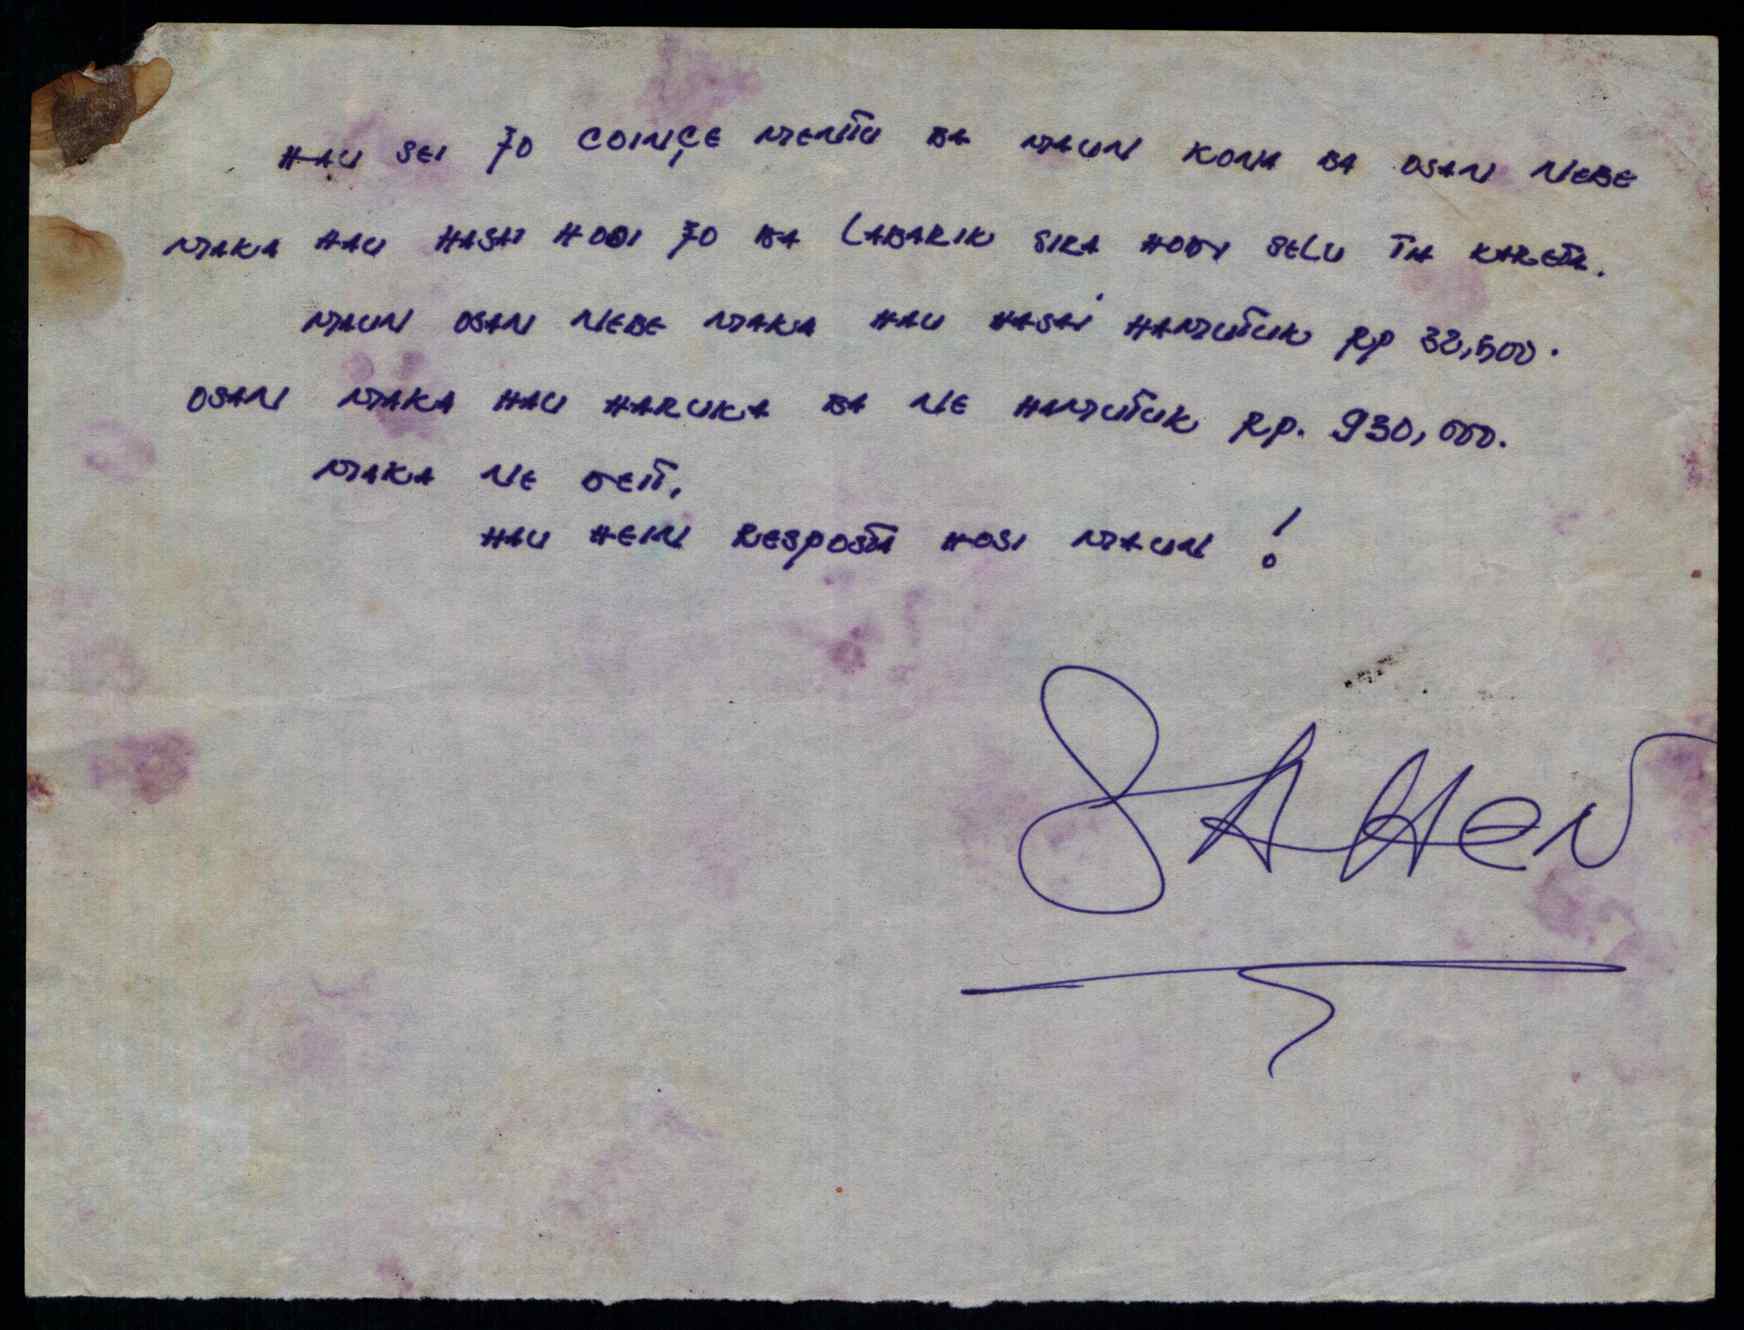 HAU SEI FO COINÇE MENTU BA MAUN KONA BA OSAN NEBE
MAKA HAU HASAI HODI FO BA LABARIK SIRA HODI SELU TA KARETA.
MAUN OSAN NEBE MAKA HAU HASAI HAMUTUK RP 32,500.
OSAN MAKA HAU HARUKA BA NE HAMUTUK RP. 930,000.
MAKA NE DEIT,
HAU HEIN RESPOSTA HOSI MAUN !
SAHEN